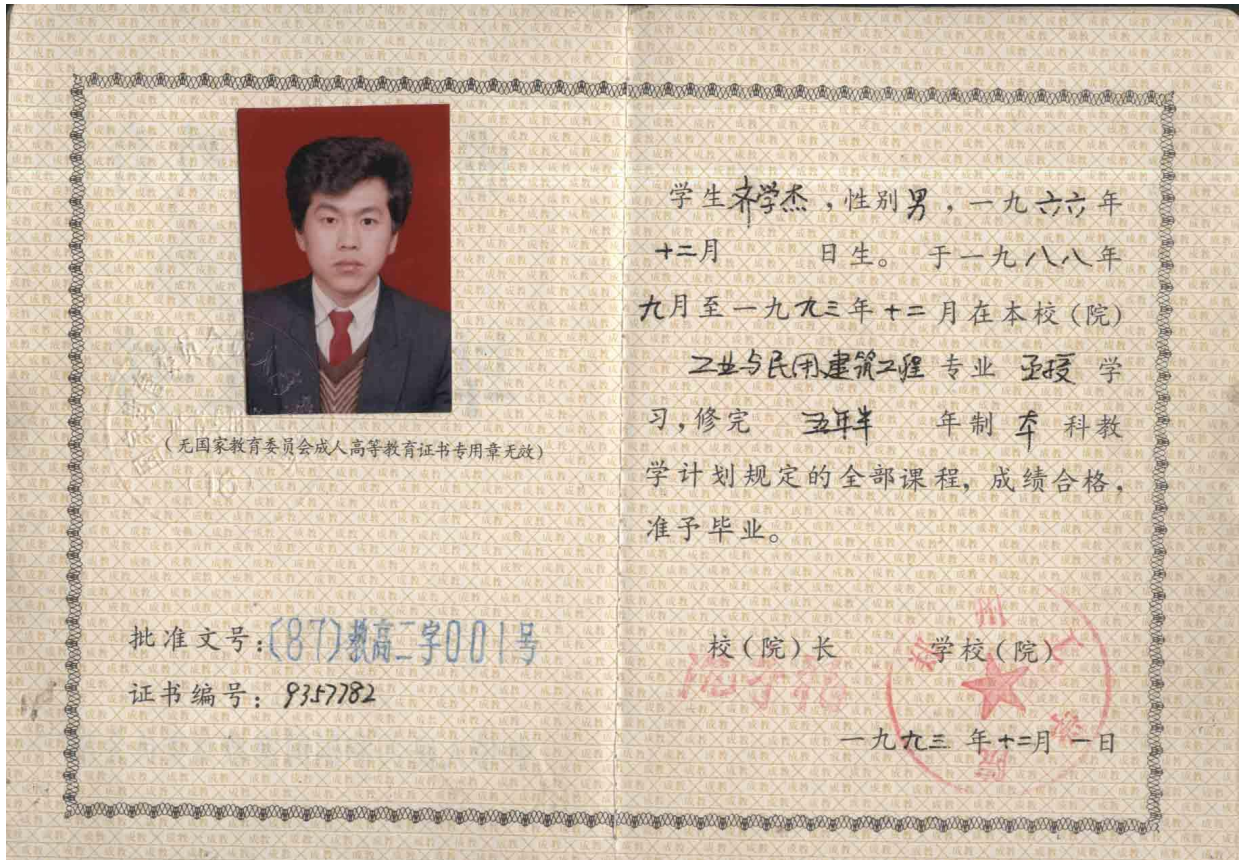 (无国家教育委员会成人高等教育证书专用章无效)
批准文号:(87)教高二字001号
证书编号:9357782
学生齐学杰,性别男,一九六六年
十二月 日生。于一九八八年
九月至一九九三年十二月在本校(院)
工业与民用建筑工程专业函授学
习,修完 五年半 年制本科教
学计划规定的全部课程,成绩合格,
准予毕业。
校(院)长 学校(院)
一九九三年十二月一日